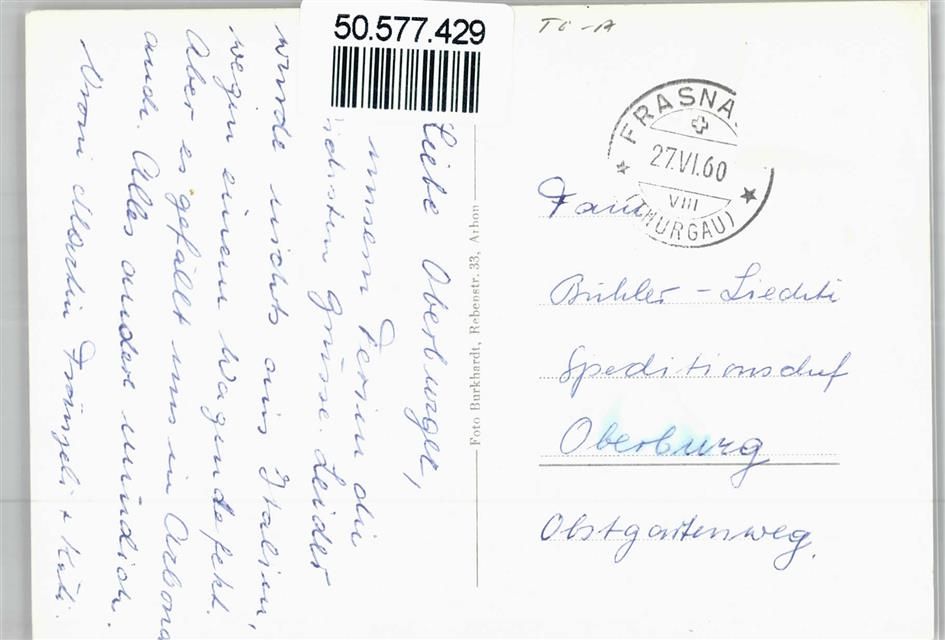 50.577.429
TG-A
FRASNA
27.VI.60
VIII
(THURGAU)
Liebe Oberburger,
unsern Ferien die
Grüsse. Leider
wurde nichts aus Italien,
wegen einem Wagendefekt.
Aber es gefällt uns in Arbona
auch. Alles andere mündlich.
Vroni Martin Fränzeli + Käti.
Foto Burkhardt, Rebenstr. 33, Arbon
Bühler - Liechti
Speditionschef
Oberburg
Obstgartenweg.